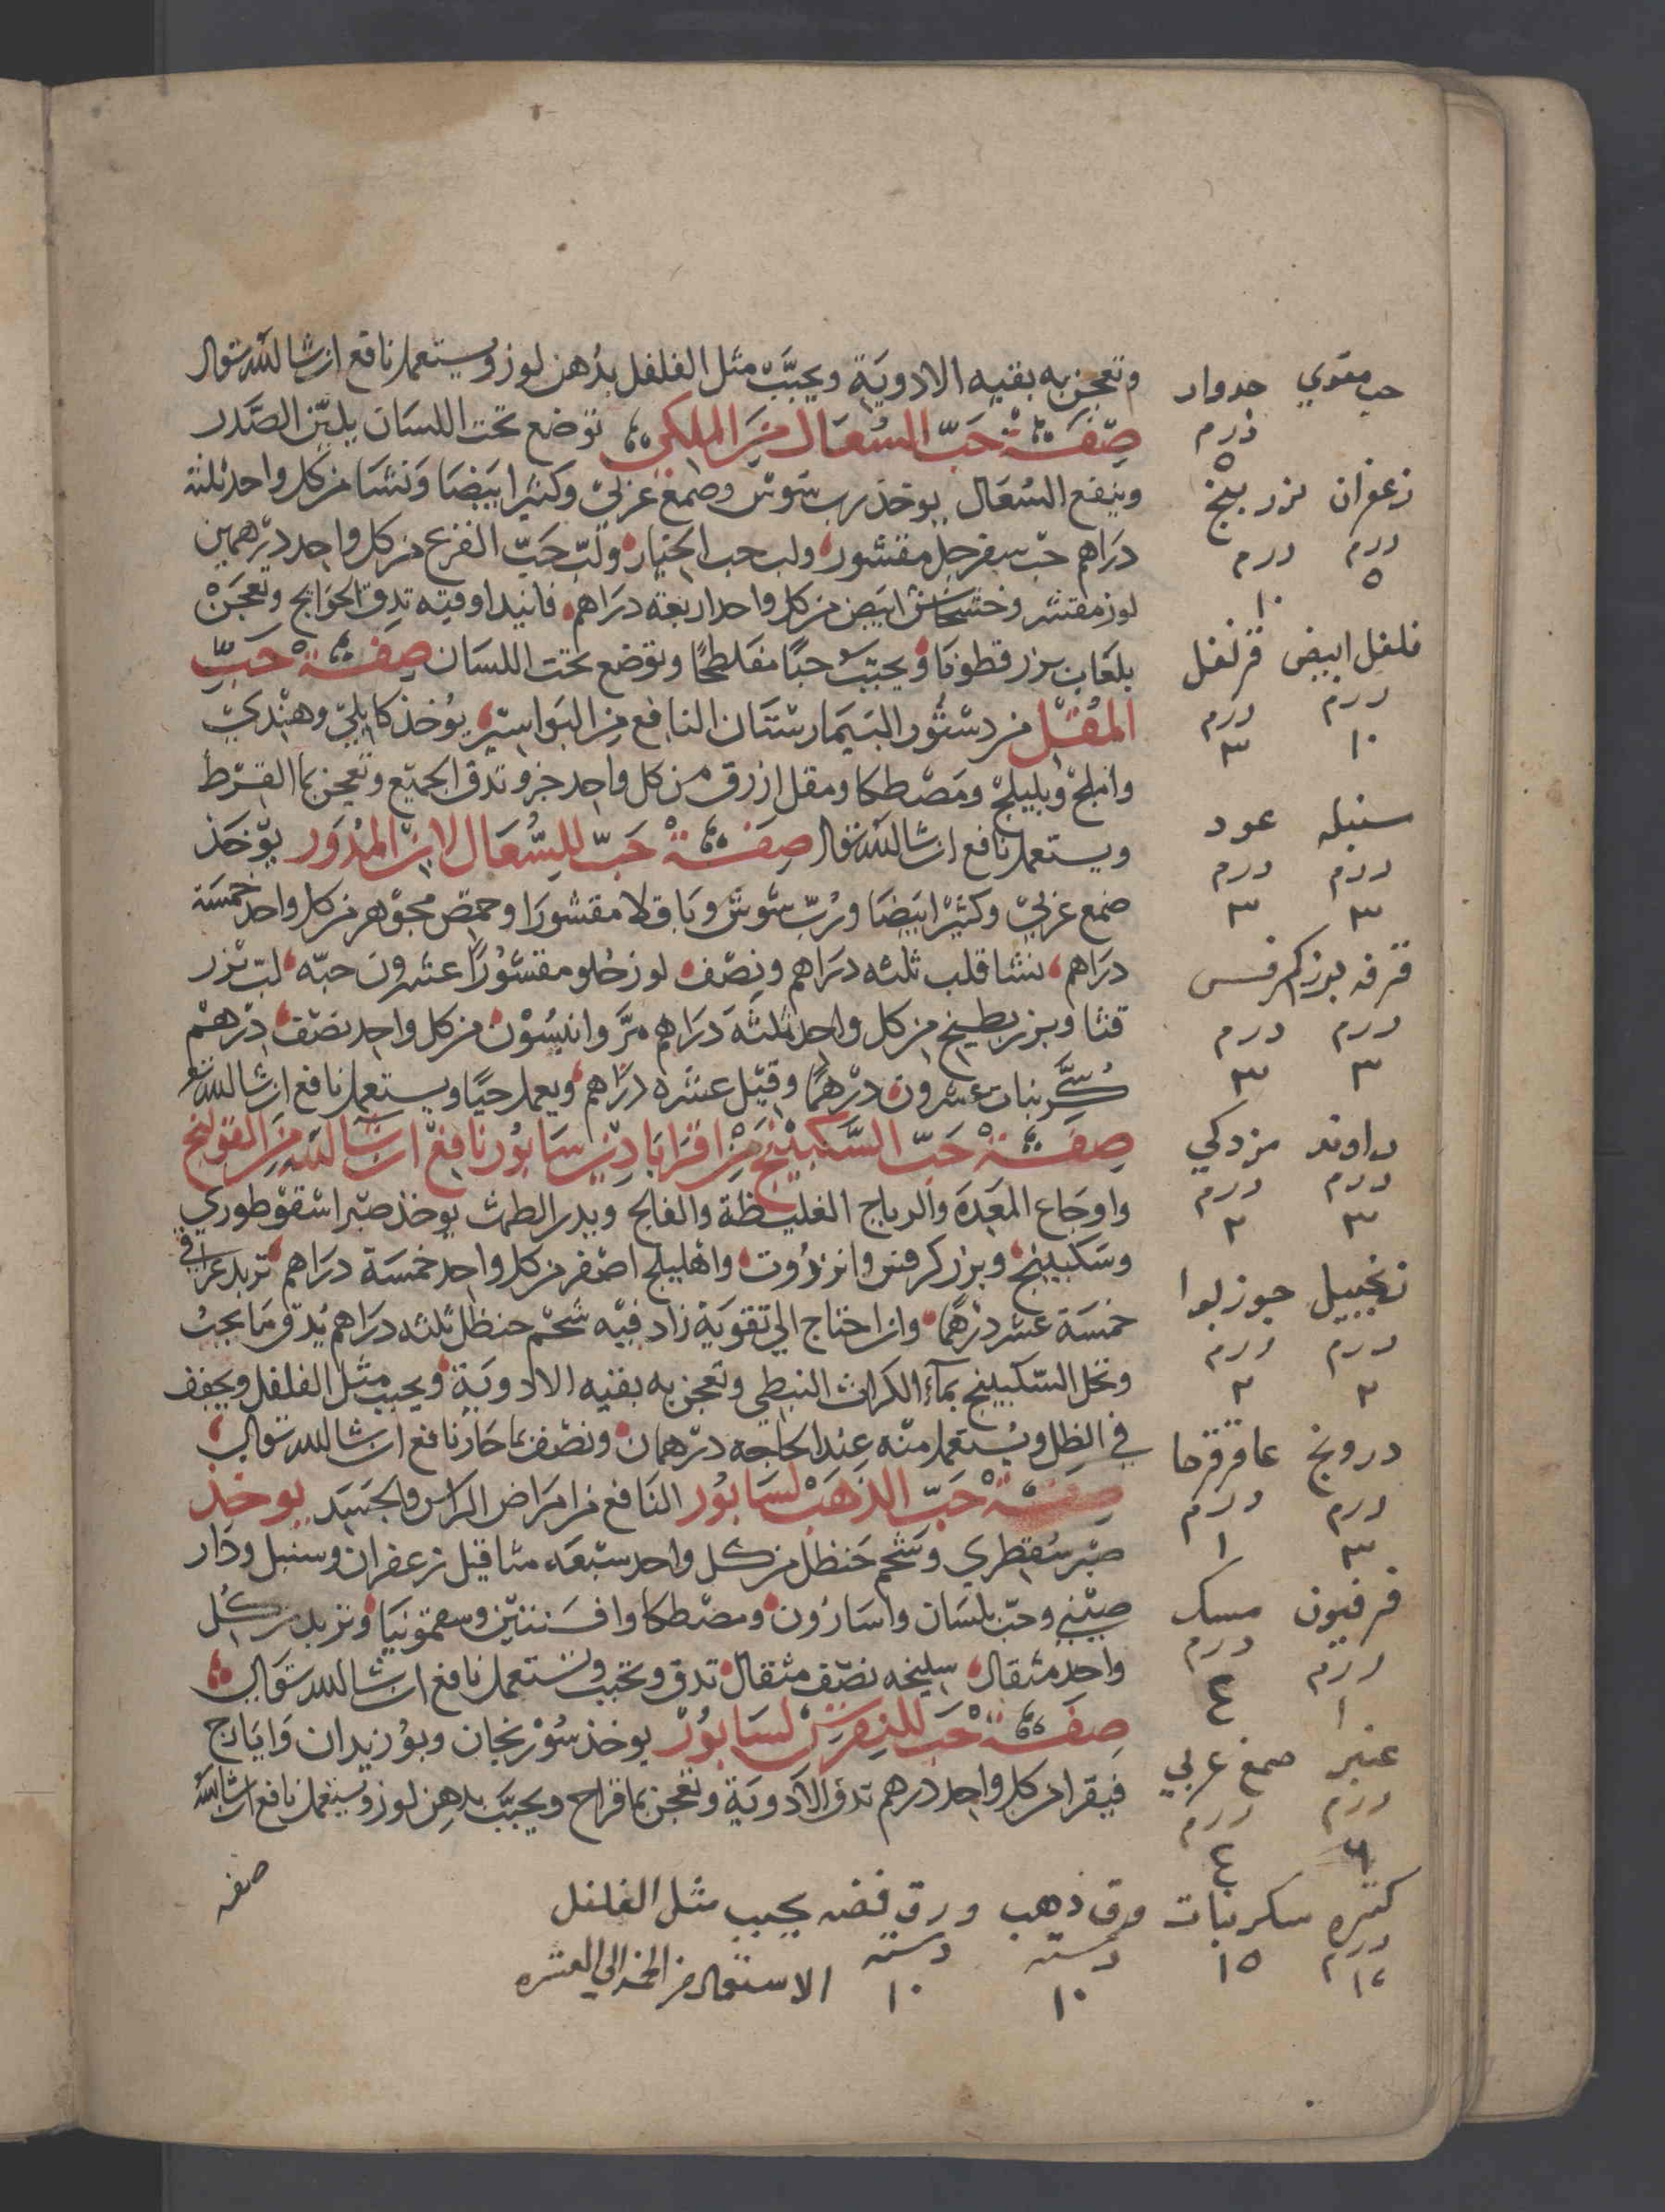 وتعجن به بقيه الادوية ويحبب مثل الفلفل بدهن لوز ويستعمل نافع ان شا الله تعالى
صفة حب السعال من الملكي توضع تحت اللسان يلين الصدر
وينفع السعال يوخذ رب سوس وصمغ عربي وكثيرا بيضا ونشا من كل واحد ثلثه
دراهم حب سفرجل مقشور ولب حب الخيار ولب حب القرع من كل واحد درهمين
لوز مقشر وخشخاش ابيض من كل واحد اربعة دراهم فانيد اوقيه تدق الحوايج وتعجن
بلعاب بزر قطونا ويحبب حبا مفلطحا وتوضع تحت اللسان صفة حب
المقل من دستور البيمارستان النافع من البواسير يوخذ كابلي وهندي
واملج وبليلج ومصطكا ومقل ازرق من كل واحد جزو تدق الجميع وتعجن بما القرط
ويستعمل نافع ان شا الله تعالى صفة حب للسعال لابن المدور يوخذ
صمغ عربي وكثيرا بيضا ورب سوس وباقلا مقشورا وحمص مجوهر من كل واحد خمسة
دراهم نشا قلب ثلثه دراهم ونصف لوز حلو مقشورا عشرون حبه لب بزر
قثا وبزر بطيخ من كل واحد ثلثة دراهم مر وانيسون من كل واحد نصف درهم
سكر نبات عشرون درهما وقيل عشره دراهم ويعمل حبا ويستعمل نافع ان شا الله تع
صفة حب السكبينج من اقراباذين سابور نافع ان شا الله من القولنج
واوجاع المعدة والرياح الغليظة والفالج ويدر الطمث يوخذ صبر اسقوطوري
وسكبينج وبزر كرفس وانزروت واهليلج اصفر من كل واحد خمسة دراهم تربد عراقي
خمسة عشر درهما وان احتاج الي تقوية زاد فيه شحم حنظل ثلثه دراهم يدق ما يجب
وتحل السكبينج بماء الكراث النبطي وتعجن به بقيه الادوية ويحبب مثل الفلفل ويجفف
في الظل ويستعمل منه عند الحاجه درهمان ونصف بما حار نافع ان شا الله تعالى
صفة حب الذهب لسابور النافع من امراض الراس والجسد يوخذ
صبر سقطري وشحم حنظل من كل واحد سبعة مثاقيل زعفران وسنبل ودار
صيني وحب بلسان واسارون ومصطكا وافسنتين وسقمونيا وتربد من كل
واحد مثقال سليخه نصف مثقال تدق وتحبب وتستعمل نافع ان شا الله تعالى
صفة حب للنقرس لسابور يوخذ سورنجان وبوزيدان وايارج
فيقرا من كل واحد درهم تدق الادوية وتعجن بما قراح ويحبب بدهن لوز ويستعمل نافع ان شا الله
صفه
حب مقوي جدوار
درم
٥
زعفران بزر بنج
درم درم
٥ ١٠
فلفل ابيض قرنفل
درم درم
١٠ ٣
سنبله عود
درم درم
٣ ٣
قرفه بزر كرفس
درم درم
٣ ٣
راوند مزدكي
درم درم
٣ ٢
زنجبيل جوز بوا
درم درم
٢ ٢
درونج عاقرقرحا
درم درم
٣ ١
فرفيون مسك
درم درم
١ ٤
عنبر صمغ عربي
درم درم
٤
كثيره سكر نبات ورق ذهب ورق فضه يحبب مثل الفلفل
درم دسته دسته
١٥ ١٠ ١٠
الاستعمال من الخمسه الي العشره